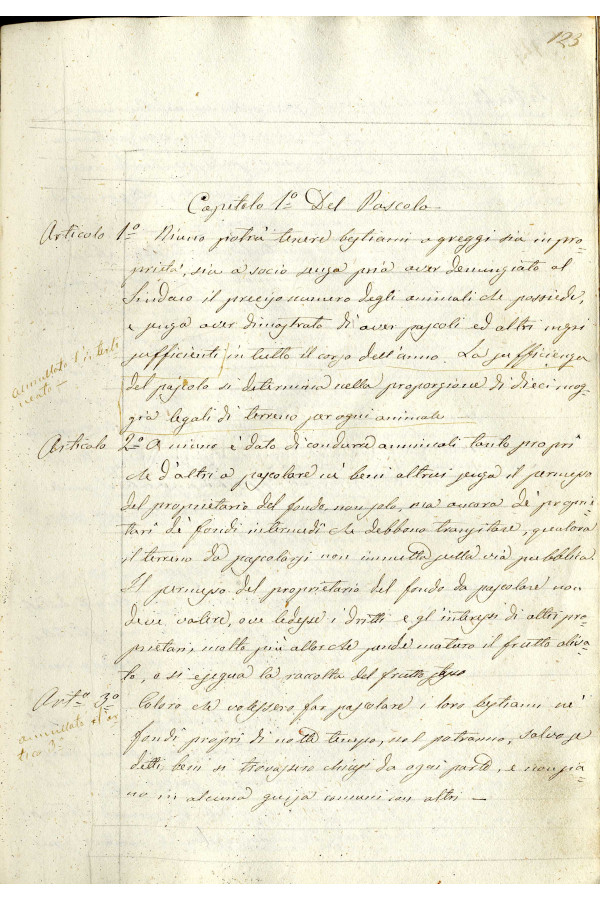 123
Capitolo 1º Del Pascolo
Articolo 1º Niuno potrà tenere bestiami o greggi sia in pro-
prietà, sia a socio senza pria aver denunziato al
Sindaco il preciso numero degli animali che possiede,
e senza aver dimostrato di aver pascoli ed altri ingri
sufficienti in tutto il corso dell'anno. La sufficienza
annullato l'
del pascolo si determina nella proporzione di dieci mog-
gia legali di terreno per ogni animale
Articolo 2º A niuno è dato di condurre animali tanto proprî
che d'altri a pascolare ne' beni altrui senza il permesso
del proprietario del fondo, non solo, ma ancora de' proprie-
tarî de' fondi intermedî che debbono transitare, qualora
il terreno da pascolarsi non immetta sulla via pubblica.
Il permesso del proprietario del fondo da pascolare non
deve valere, ove ledesse i dritti e gl'interessi di altri pro-
prietari, molto più allorché pende maturo il frutto
to, o si esegua la raccolta del frutto
Artº 3º Coloro che volessero far pascolare i loro bestiami ne'
fondi propri di notte tempo, nol potranno, salvo se
annullato
detti beni si trovassero chiusi da ogni parte, e non sia-
no in alcuna guisa comuni con altri